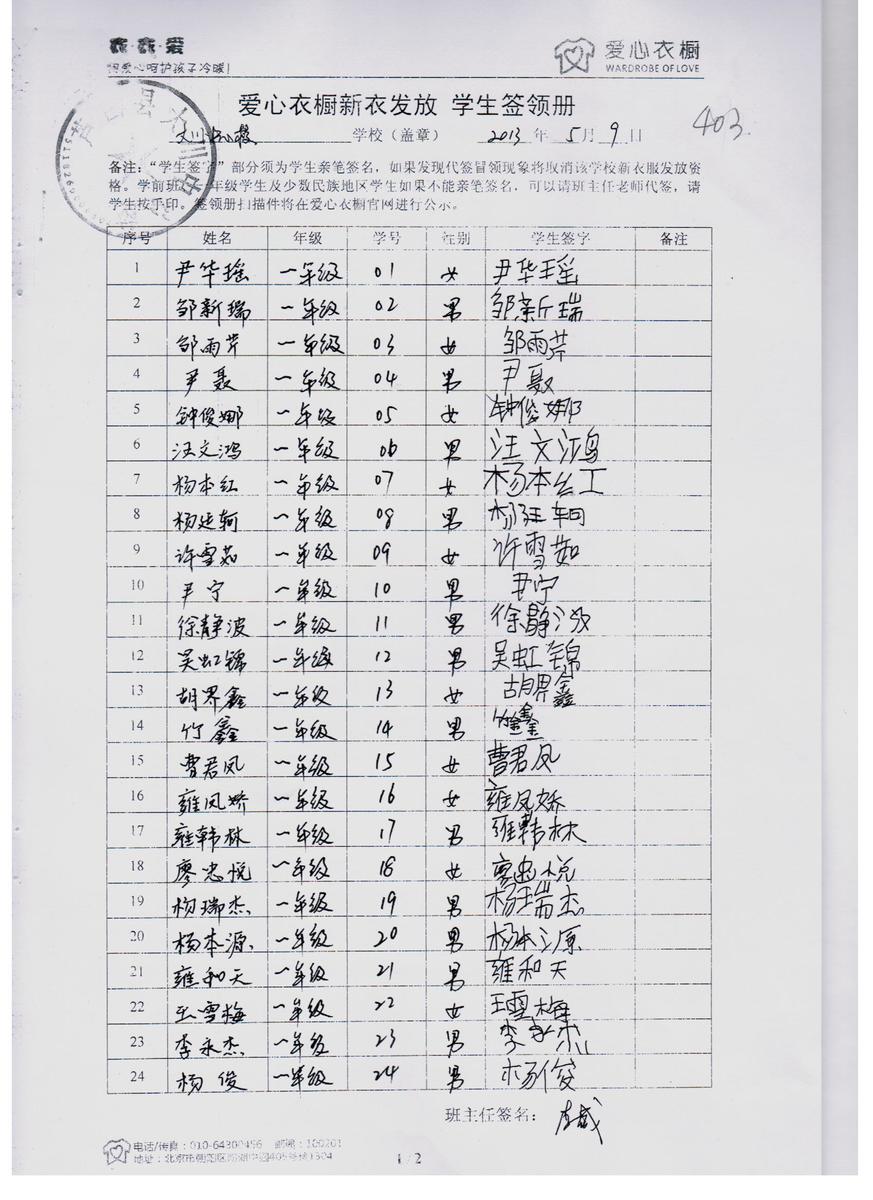 衣·衣·爱
用爱心呵护孩子冷暖!
爱心衣橱
WARDROBE OF LOVE
爱心衣橱新衣发放 学生签领册
403
学校（盖章） 2013 年 5 月 9 日
备注："学生签字"部分须为学生亲笔签名，如果发现代签冒领现象将取消该学校新衣服发放资
格。学前班、一年级学生及少数民族地区学生如果不能亲笔签名，可以请班主任老师代签，请
学生按手印。签领册扫描件将在爱心衣橱官网进行公示。
序号 姓名 年级 学号 性别 学生签字 备注
1 尹华瑶 一年级 01 女 尹华瑶
2 邹新瑞 一年级 02 男 邹新瑞
3 邹雨芹 一年级 03 女 邹雨芹
4 尹聂 一年级 04 男 尹聂
5 钟俊娜 一年级 05 女 钟俊娜
6 汪文鸿 一年级 06 男 汪文鸿
7 杨本红 一年级 07 女 杨本红
8 杨廷轲 一年级 08 男 杨廷轲
9 许雪茹 一年级 09 女 许雪茹
10 尹宁 一年级 10 男 尹宁
11 徐静波 一年级 11 男 徐静波
12 吴虹锦 一年级 12 男 吴虹锦
13 胡界鑫 一年级 13 女 胡界鑫
14 竹鑫 一年级 14 男 竹鑫
15 曹君凤 一年级 15 女 曹君凤
16 雍凤娇 一年级 16 女 雍凤娇
17 雍韩林 一年级 17 男 雍韩林
18 廖忠悦 一年级 18 女 廖忠悦
19 杨瑞杰 一年级 19 男 杨瑞杰
20 杨本源 一年级 20 男 杨本源
21 雍和天 一年级 21 男 雍和天
22 王雪梅 一年级 22 女 王雪梅
23 李永杰 一年级 23 男 李永杰
24 杨俊 一年级 24 男 杨俊
班主任签名：
电话/传真：010-64300456 邮编：100201
1/2